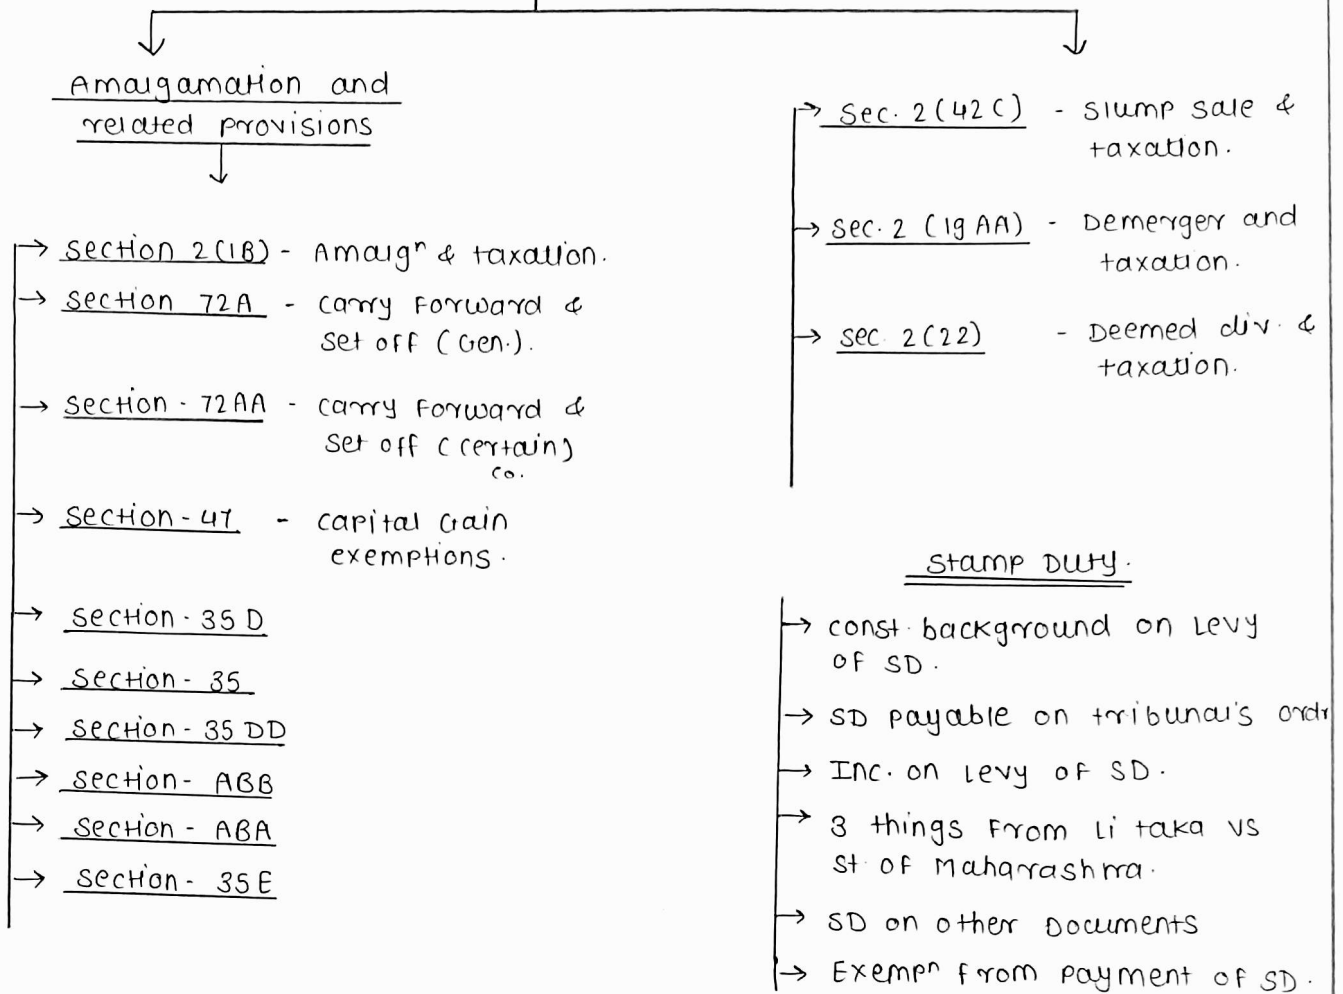 Amalgamation and
related provisions
Section 2(1B) - Amalgⁿ & taxation.
Section 72A - carry forward &
set off (Gen.).
Section - 72AA - carry forward &
set off (certain)
co.
Section - 47 - capital Gain
exemptions.
Section - 35 D
Section - 35
Section - 35 DD
Section - ABB
Section - ABA
Section - 35 E
Sec. 2 (42 C) - Slump sale &
taxation.
Sec. 2 (19 AA) - Demerger and
taxation.
Sec. 2(22) - Deemed div. &
taxation.
Stamp Duty.
const. background on Levy
of SD.
SD payable on tribunal's ordr
Inc. on Levy of SD.
3 things from Li taka vs
St. of Maharashtra.
SD on other Documents
Exempⁿ from payment of SD.